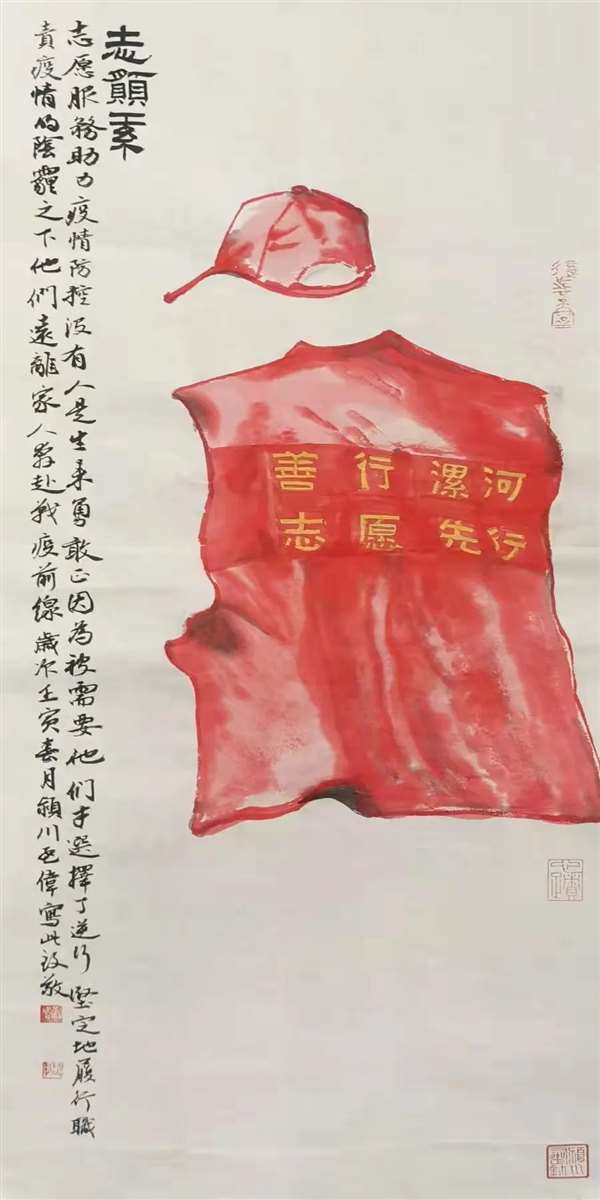 志願素
志愿服務助力疫情防控没有人是生来勇敢正因為被需要他们才選擇了逆行堅定地履行職
責疫情的陰霾之下他們遠離家人奔赴戰疫前線歲次壬寅春月潁川亞偉寫此致敬
善行漯河
志愿先行